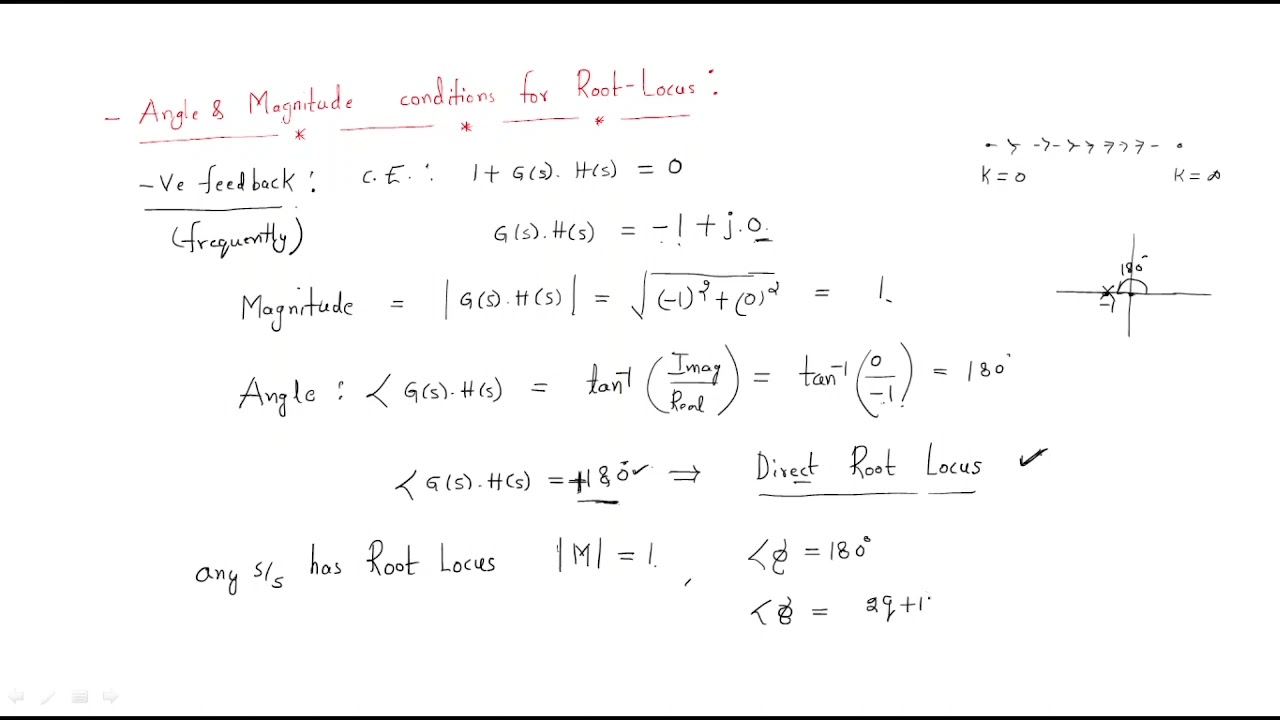 - Angle & Magnitude conditions for Root-Locus :
-Ve feedback : C.E. : 1+ G(s). H(s) = 0
(frequently)
K = 0 K = ∞
G(s).H(s) = -1 + j.0.
180°
-1
Magnitude = |G(s).H(s)| = √((-1)² + (0)²) = 1.
Angle : ∠ G(s).H(s) = tan⁻¹(Imag/Real) = tan⁻¹(0/-1) = 180°
∠ G(s).H(s) = +180° ✓ ⇒ Direct Root Locus ✓
any s/s has Root Locus |M| = 1. , ∠ø = 180°
∠ø = 2q+1